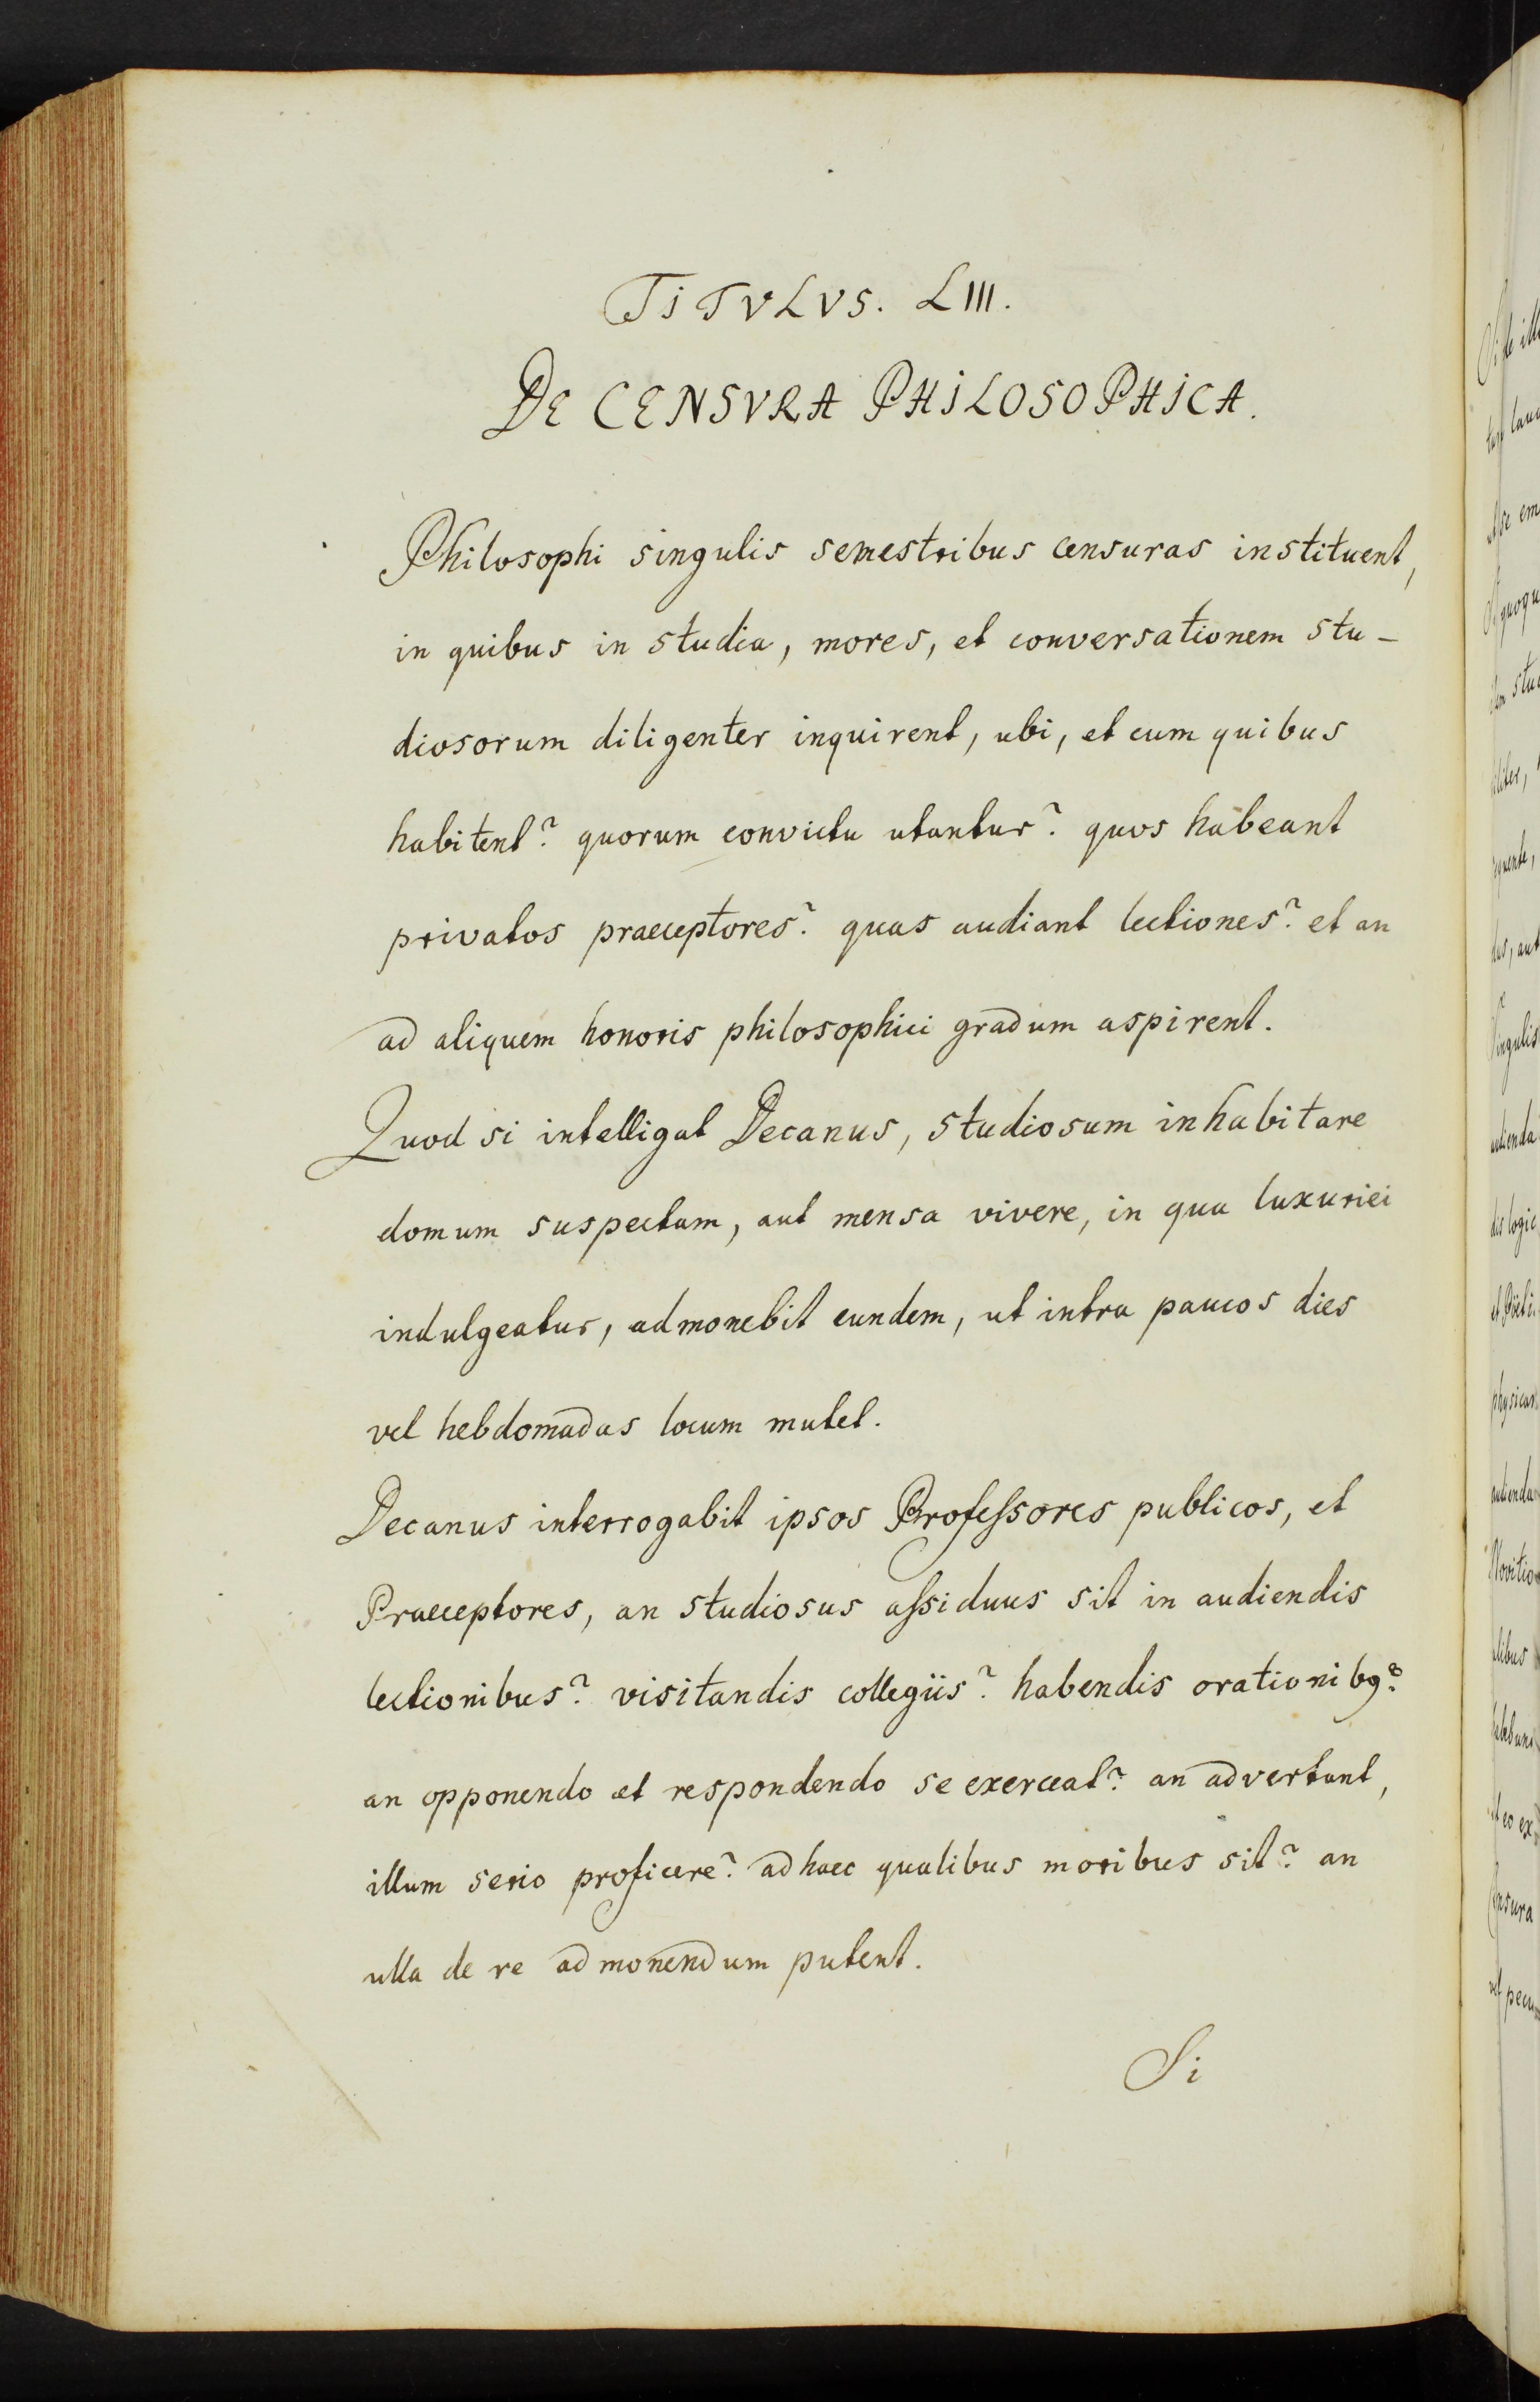 TiTVLVS. LIII.
DE CENSVRA PHiLOSOPHiCA.
Philosophi singulis semestribus censuras instituent,
in quibus in studia, mores, et conversationem stu-
diosorum diligenter inquirent, ubi, et cum quibus
habitent? quorum convictu utantur? quos habeant
privatos praeceptores? quas audiant lectiones? et an
ad aliquem honoris philosophici gradum aspirent.
Quod si intelligat Decanus, studiosum inhabitare
domum suspectam, aut mensa vivere, in qua luxuriei
indulgeatur, admonebit eundem, ut intra paucos dies
vel hebdomadas locum mutet.
Decanus interrogabit ipsos Profeſsores publicos, et
Praeceptores, an studiosus aſsiduus sit in audiendis
lectionibus? visitandis collegiis? habendis orationibꝯ?
an opponendo et respondendo se exerceat? an advertant,
illum serio proficere? ad haec qualibus moribus sit? an
ulla de re admonendum putent.
Si